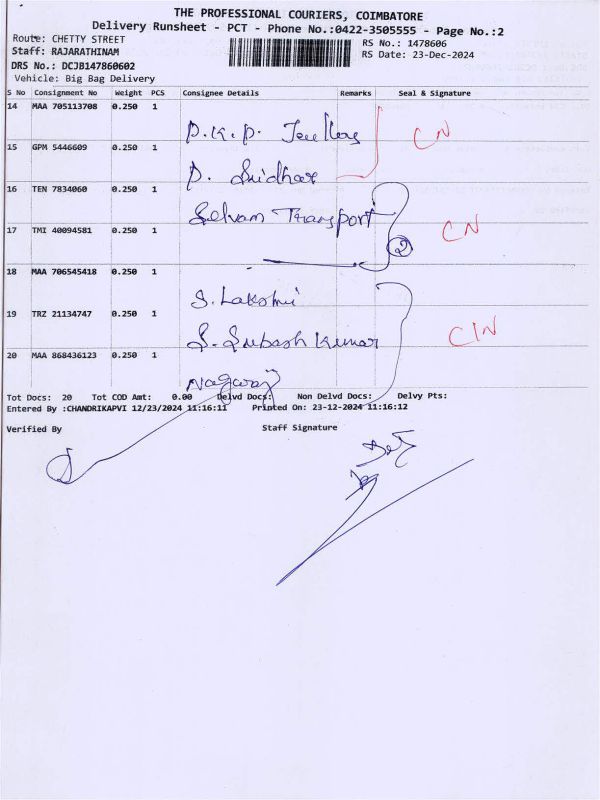 THE PROFESSIONAL COURIERS, COIMBATORE
Delivery Runsheet - PCT - Phone No.:0422-3505555 - Page No.:2
Route: CHETTY STREET
RS No.: 1478606
Staff: RAJARATHINAM
RS Date: 23-Dec-2024
DRS No.: DCJB147860602
Vehicle: Big Bag Delivery
S No Consignment No Weight PCS Consignee Details Remarks Seal & Signature
14 MAA 705113708 0.250 1
P.K.P. CN
15 GPM 5446609 0.250 1
P. Sridhar
16 TEN 7834060 0.250 1
Selvam Transport
17 TMI 40094581 0.250 1 CN
2
18 MAA 706545418 0.250 1
S. Lakshmi
19 TRZ 21134747 0.250 1
S. Subash Kumar CN
20 MAA 868436123 0.250 1
Nagaraj
Tot Docs: 20 Tot COD Amt: 0.00 Delvd Docs: Non Delvd Docs: Delvy Pts:
Entered By :CHANDRIKAPVI 12/23/2024 11:16:11 Printed On: 23-12-2024 11:16:12
Verified By Staff Signature